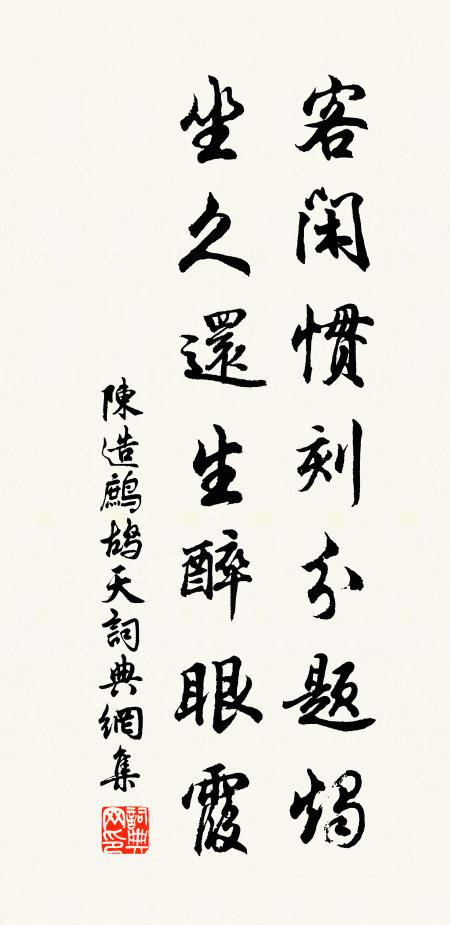 客閑慣刻分題燭
坐久還生醉眼霞
陳造鷓鴣天詞典網集
詞典網印